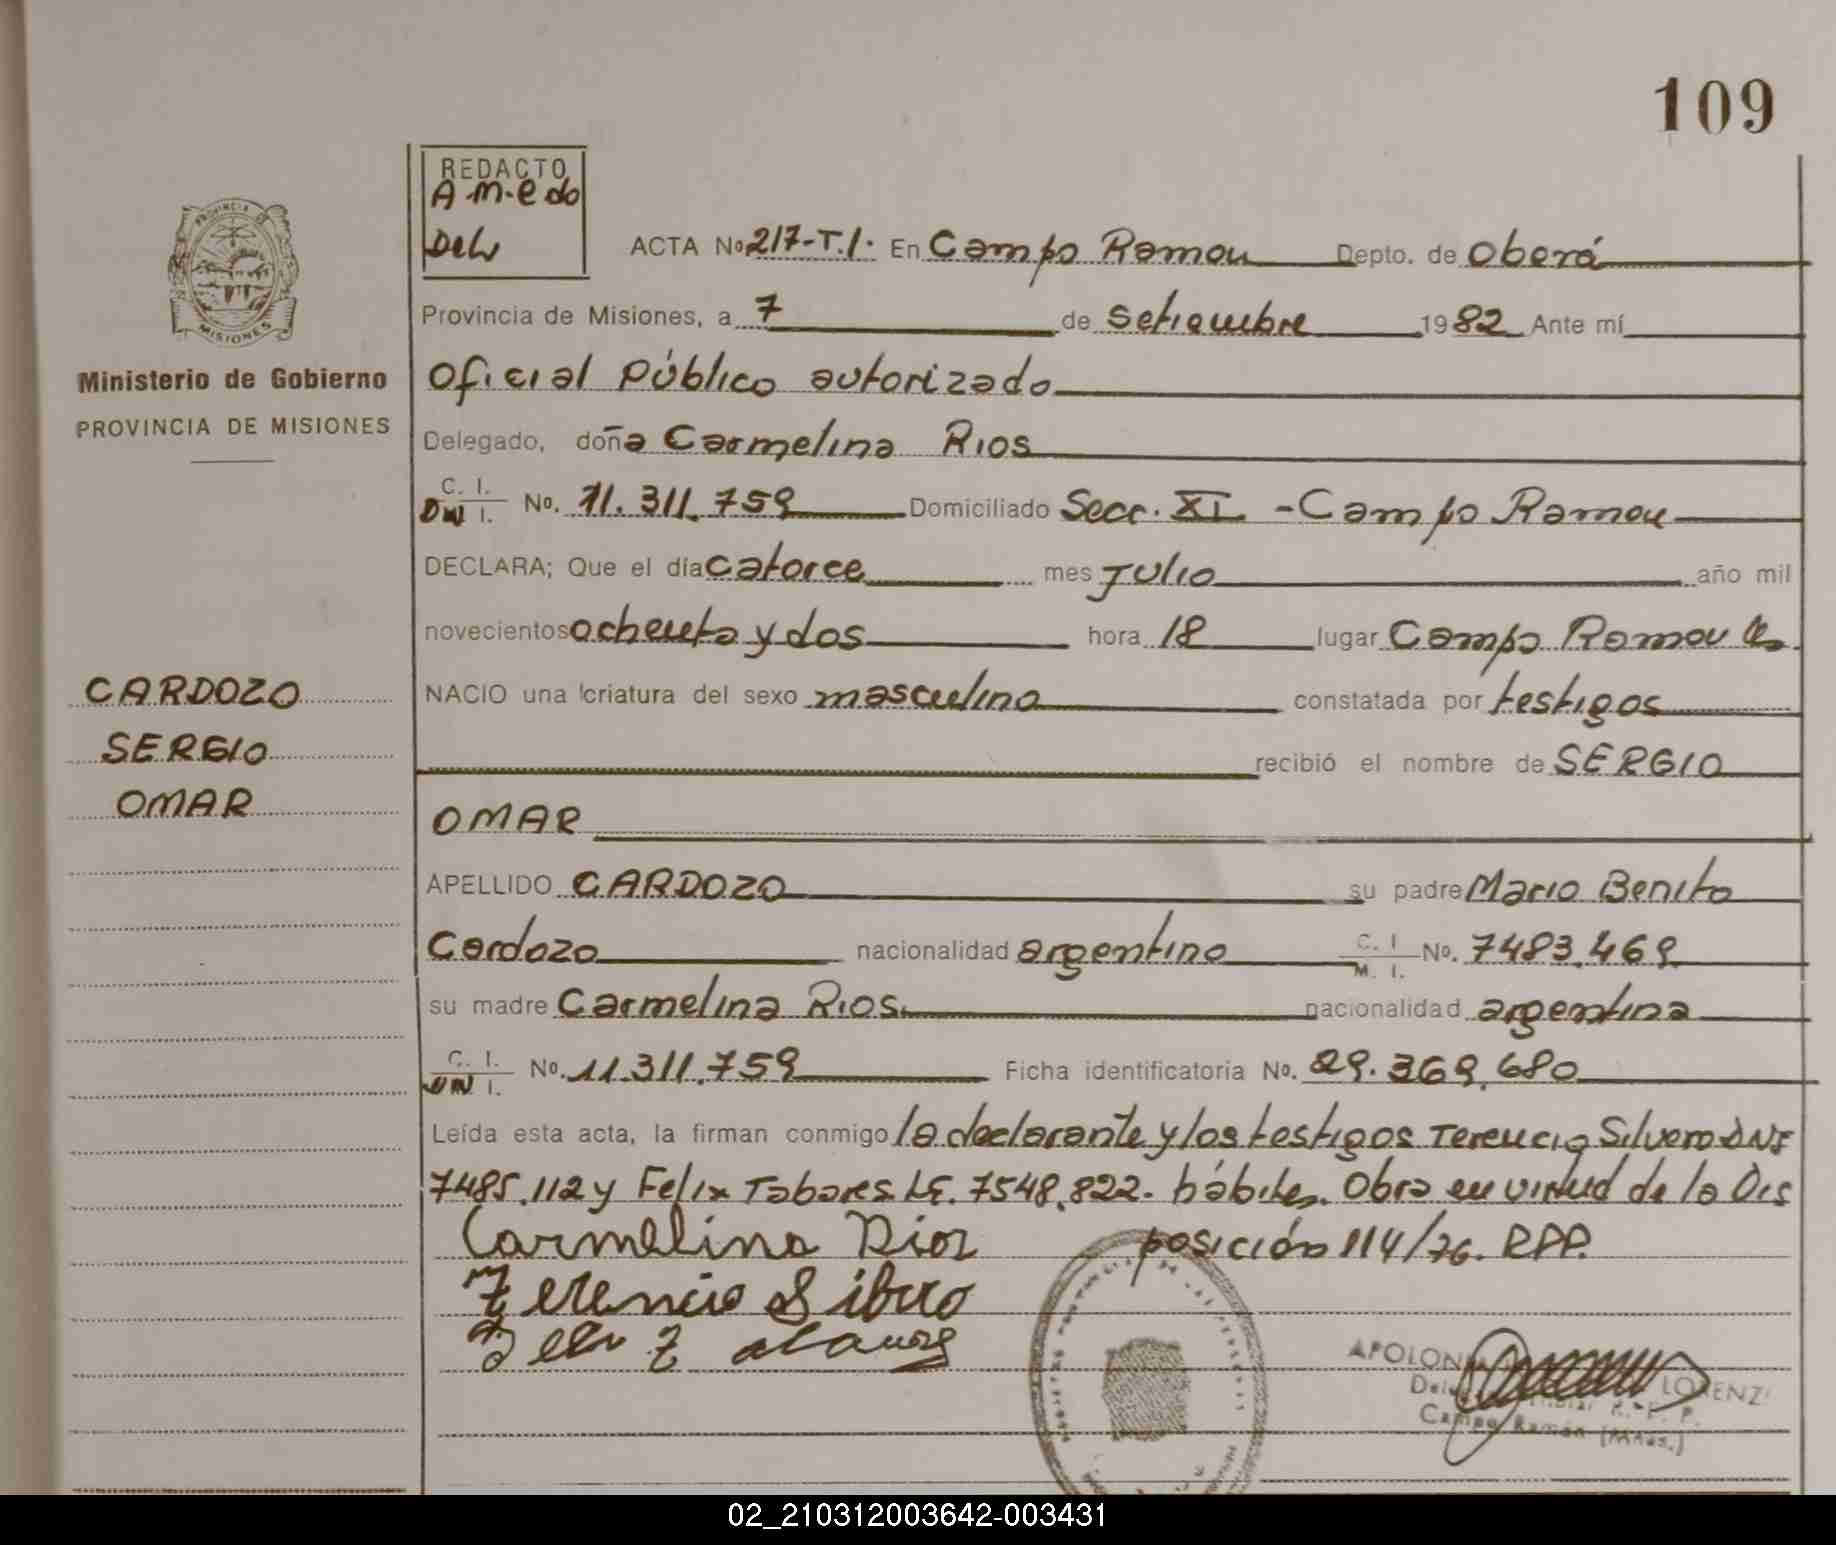 109
REDACTO
A.M.E do
Del
PROVINCIA DE
MISIONES
Ministerio de Gobierno
PROVINCIA DE MISIONES
ACTA No 217-T.I. En Campo Ramon Depto. de Oberá
Provincia de Misiones, a 7 de Setiembre 1982 Ante mí
Oficial Público autorizado
Delegado, doña Carmelina Rios
C. I. DN I. No. 11.311.759 Domiciliado Secc. XI - Campo Ramon
DECLARA; Que el día catorce mes Julio año mil
novecientos ochenta y dos hora 18 lugar Campo Ramon
CARDOZO
SERGIO
OMAR
NACIO una criatura del sexo masculino constatada por testigos
recibió el nombre de SERGIO
OMAR
APELLIDO CARDOZO su padre Mario Benito
Cardozo nacionalidad argentino C. I. M. I. No. 7483.469
su madre Carmelina Rios nacionalidad argentina
C. I. DN I. No. 11.311.759 Ficha identificatoria No. 29.369.680
Leída esta acta, la firman conmigo la declarante y los testigos Terencio Silvero DNI
7485.112 y Felix Tabares LE. 7548.822. hábiles. Obra en virtud de la Dis
posición 114/76. RPP.
Carmelina Rios
Terencio Silvero
APOLON LORENZ
Campo Ramón (Mnes.)
02_210312003642-003431